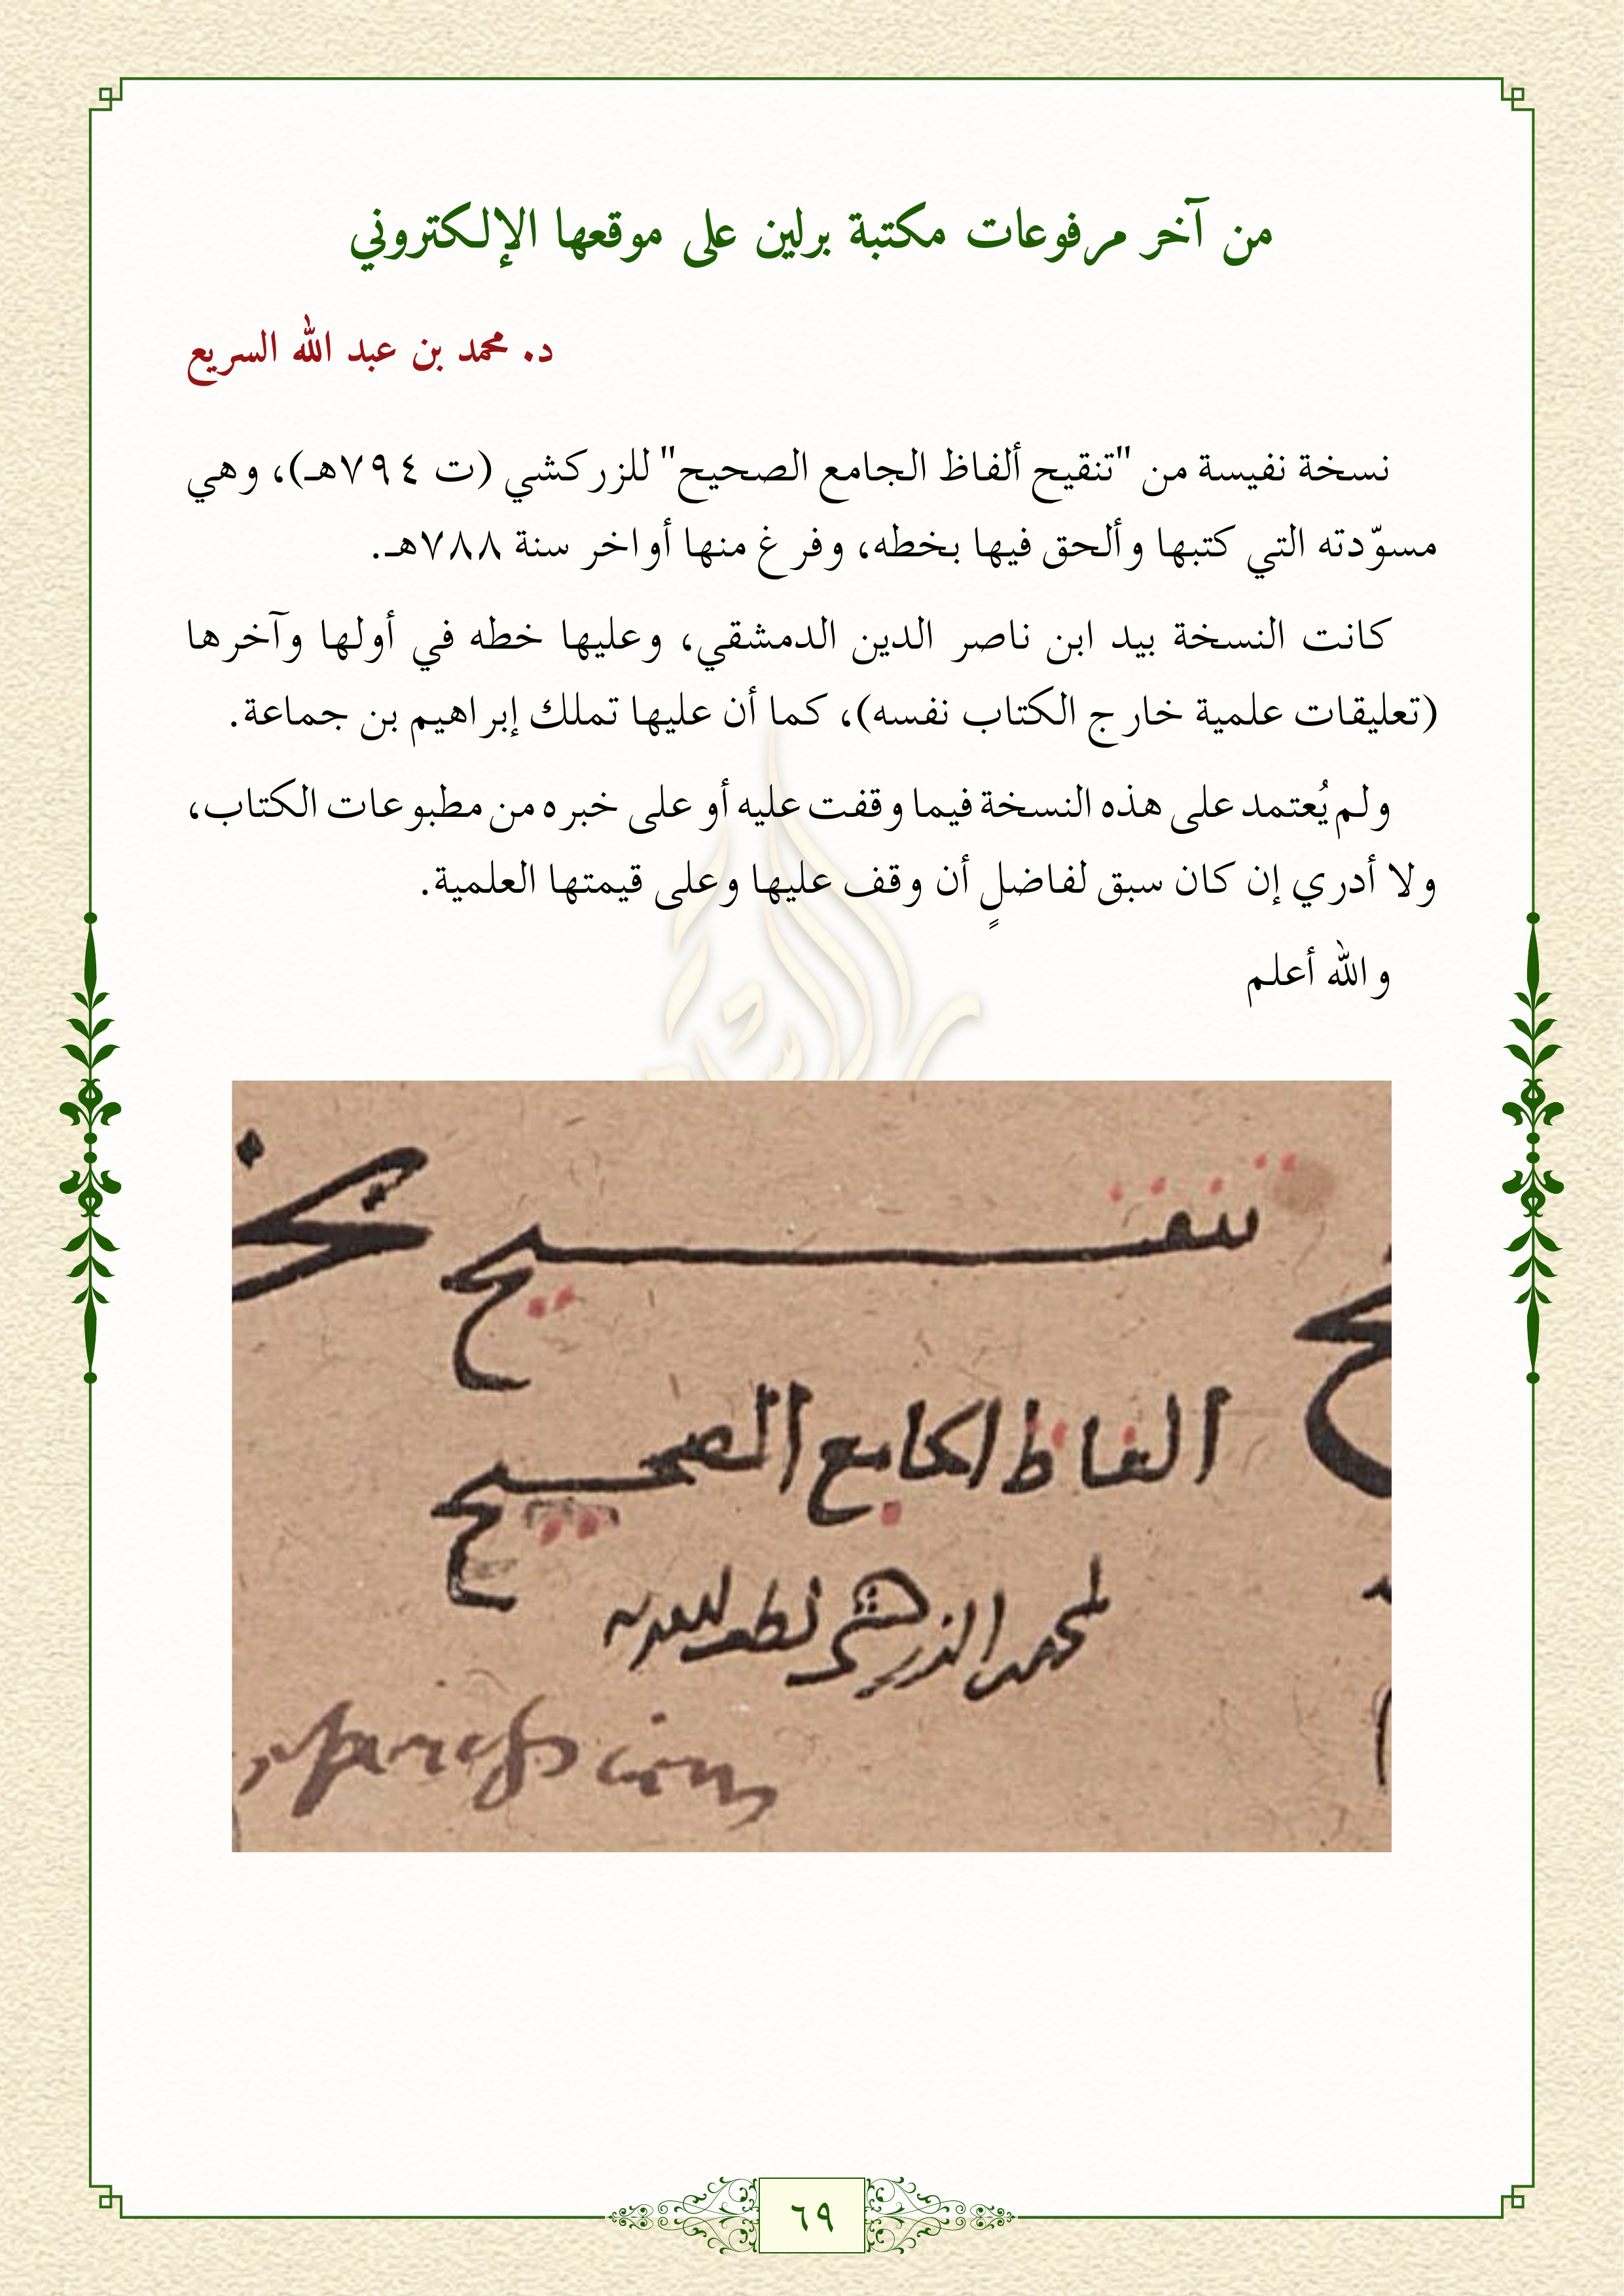 من آخر مرفوعات مكتبة برلين على موقعها الإلكتروني
د. محمد بن عبد الله السريع
نسخة نفيسة من "تنقيح ألفاظ الجامع الصحيح" للزركشي (ت ٧٩٤هـ)، وهي
مسوّدته التي كتبها وألحق فيها بخطه، وفرغ منها أواخر سنة ٧٨٨هـ.
كانت النسخة بيد ابن ناصر الدين الدمشقي، وعليها خطه في أولها وآخرها
(تعليقات علمية خارج الكتاب نفسه)، كما أن عليها تملك إبراهيم بن جماعة.
ولم يُعتمد على هذه النسخة فيما وقفت عليه أو على خبره من مطبوعات الكتاب،
ولا أدري إن كان سبق لفاضلٍ أن وقف عليها وعلى قيمتها العلمية.
والله أعلم
تنقيح
الفاظ الجامع الصحيح
لمحمد الزركشي لطف الله به
٦٩